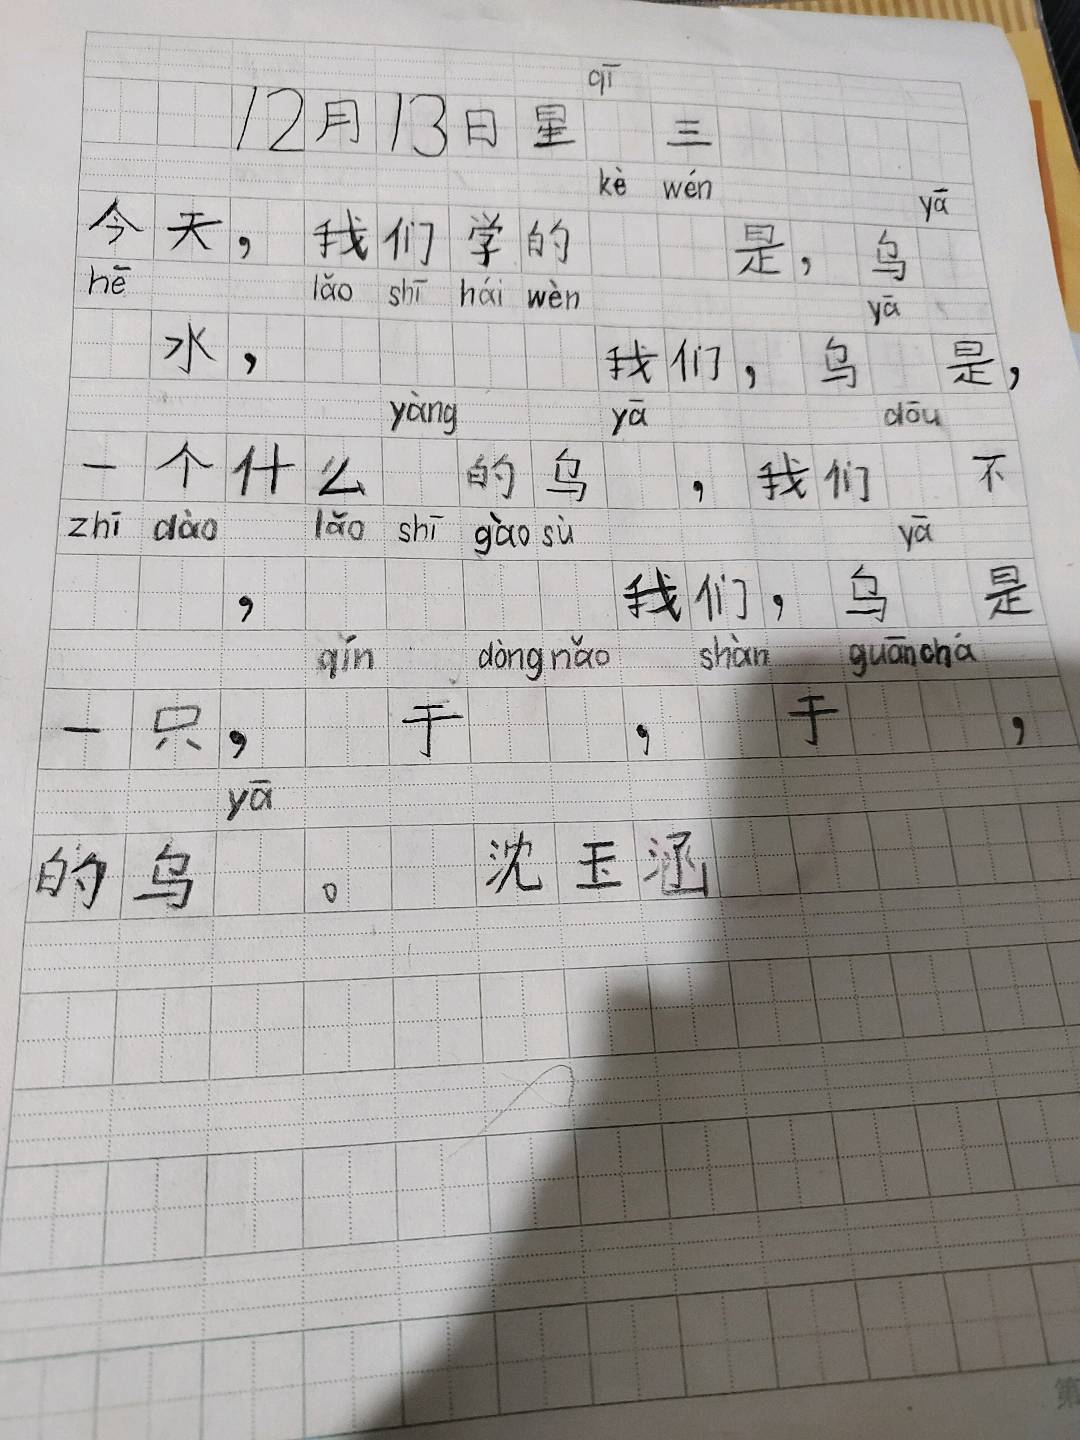 qī
12月13日星 三
kè wén yā
今天，我们学的 是，乌
hē lǎo shī hái wèn yā
水， 我们，乌 是，
yàng yā dōu
一个什么 的乌 ，我们 不
zhī dào lǎo shī gào sù yā
， 我们，乌 是
qín dòng nǎo shàn guān chá
一只， 于 ， 于 ，
yā
的乌 。 沈玉涵
第